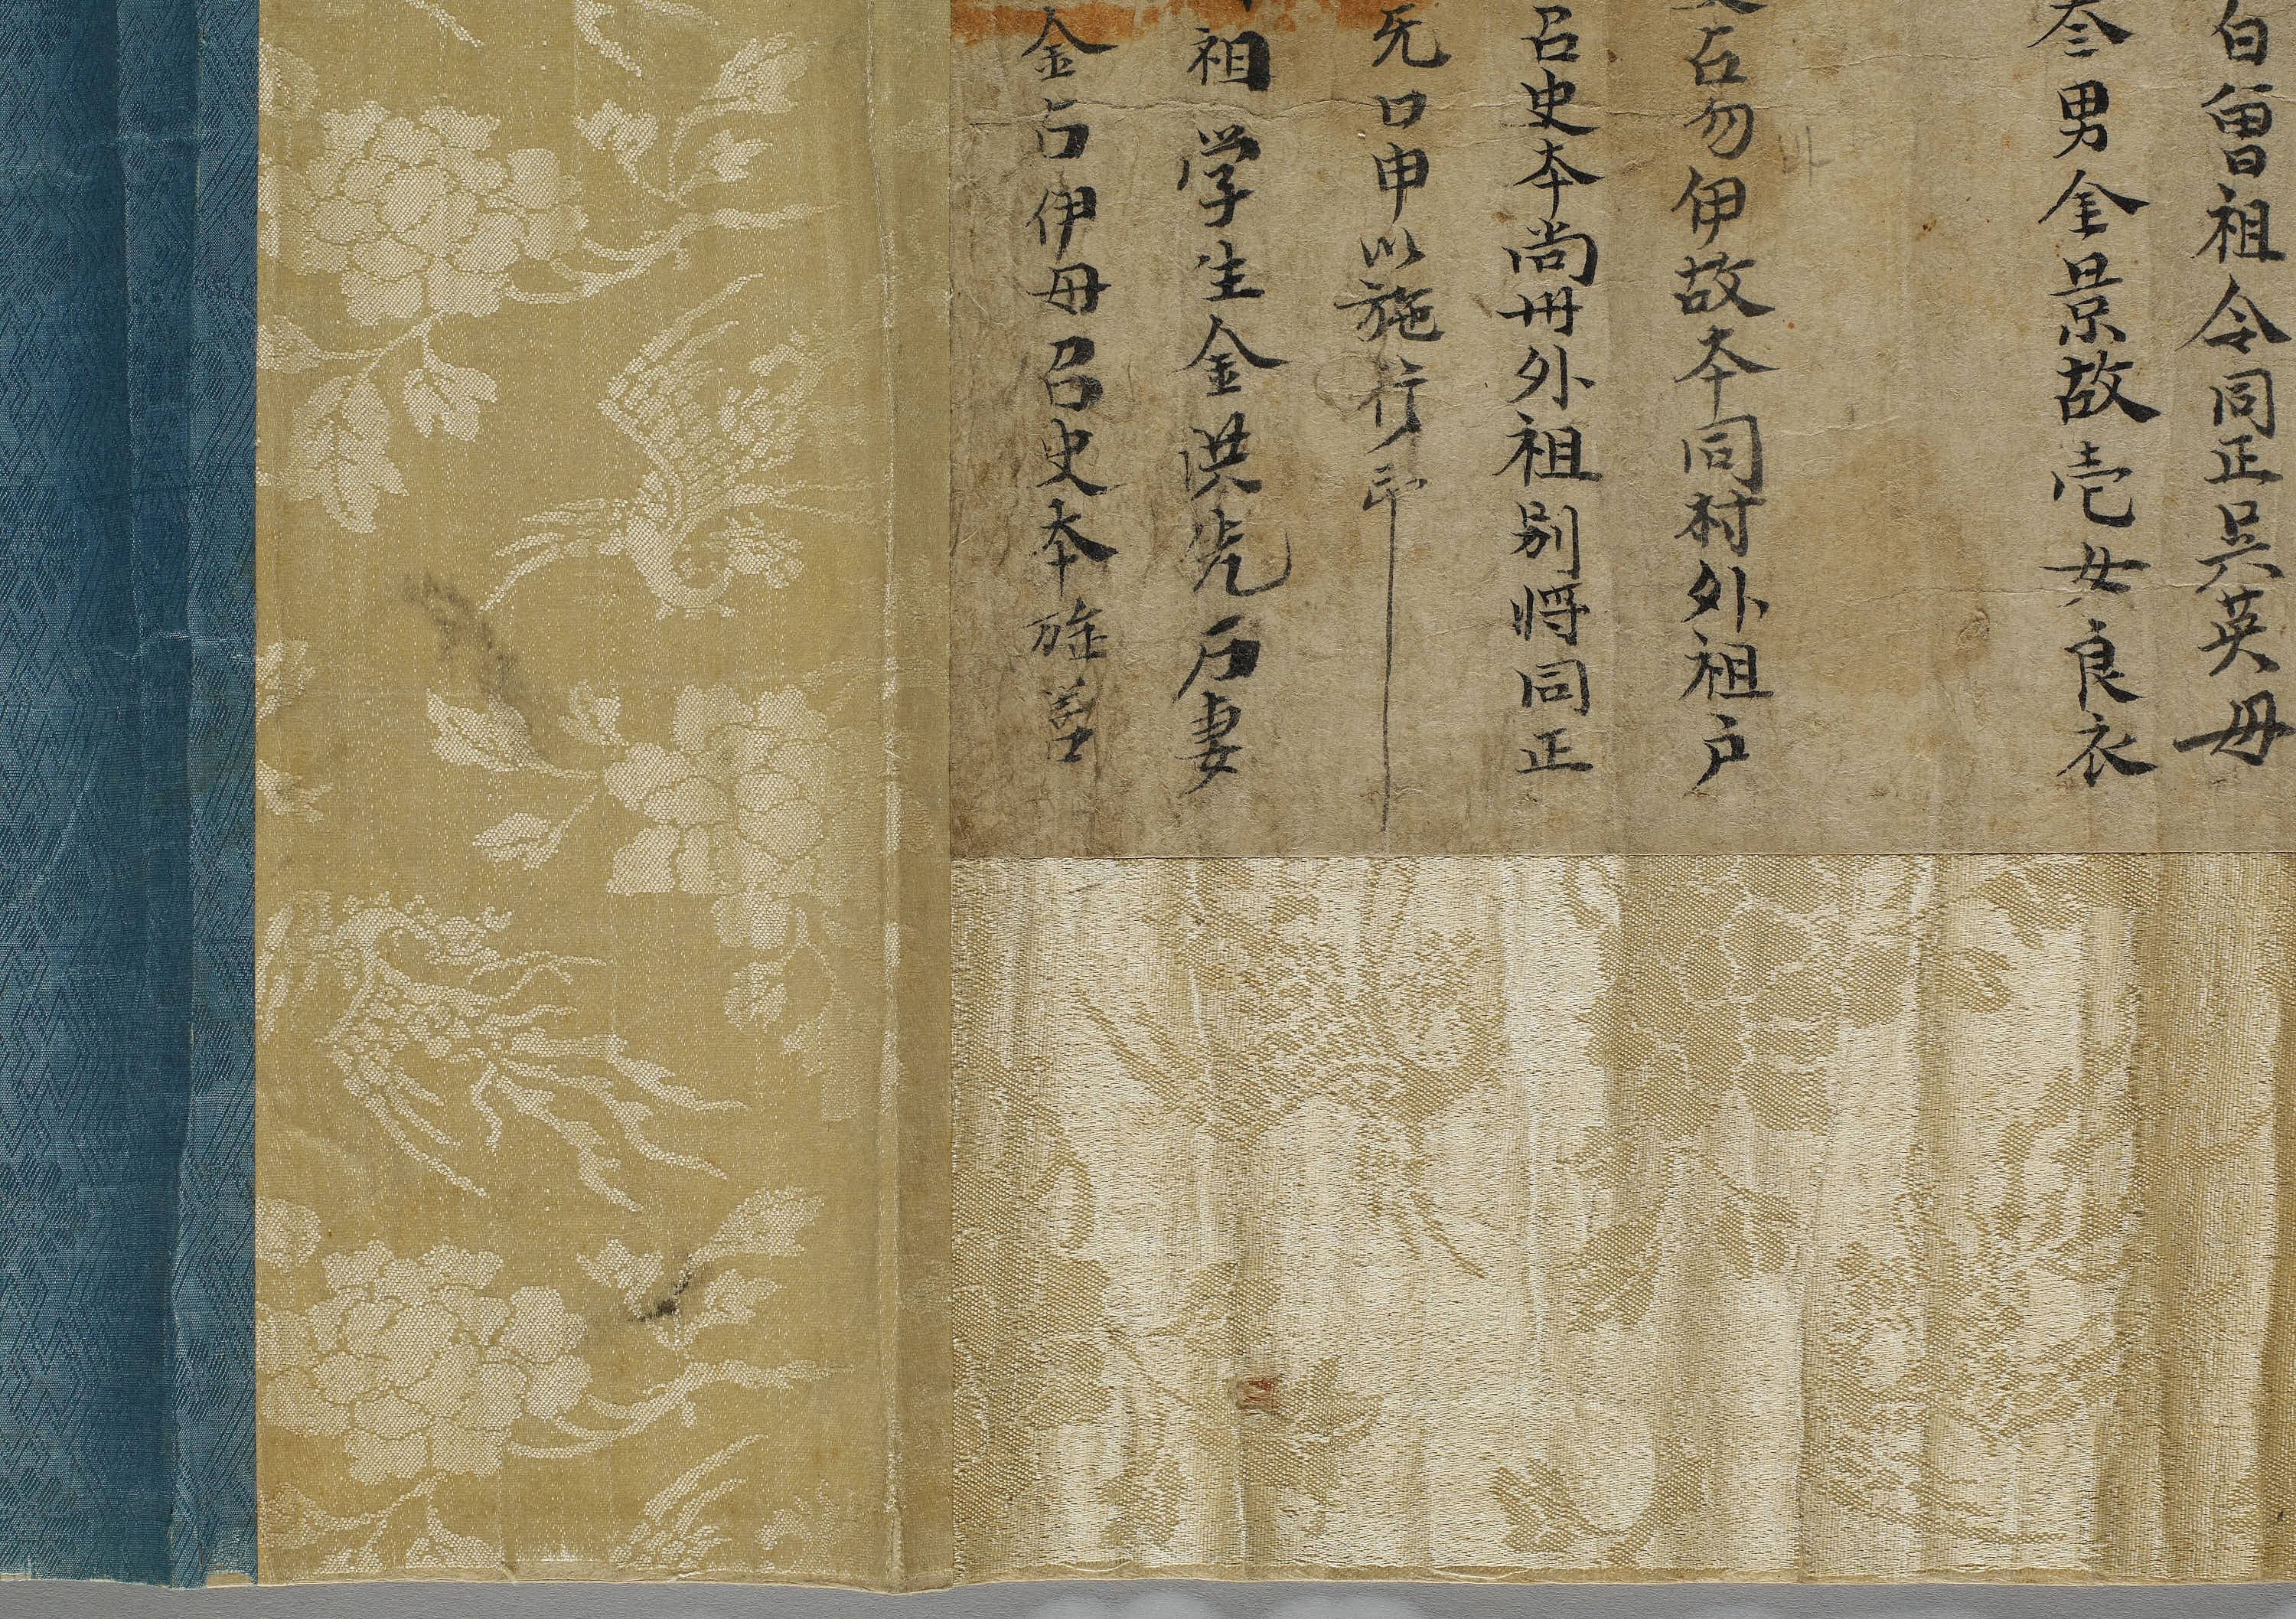 白曾祖令同正吳英母
叁男金景故壱女良衣
召勿伊故本同村外祖戶
召史本尚州外祖別将同正
旡口申以施行印
祖学生金洪先戶妻
金召伊母召史本